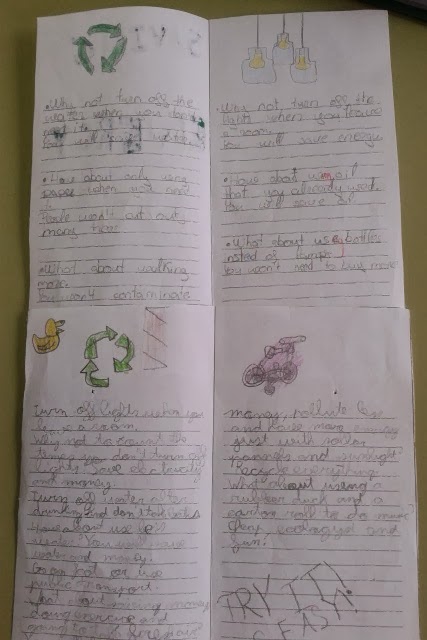 SAVE
•Why not turn off the
water when you don't
need it
You will
•How about only using
paper when you need
it
People won't cut out
many trees
•What about walking
more.
You won't contaminate
Why not turn off the
lights when you leave
a room.
You will save energy
•How about using oil
that you already used.
You will save oil
•What about use bottles
instead of lamps
You won't need to buy more
Turn off lights when you
leave a room.
Why not to count the
times you don't turn off
lights save electricity
and money.
Turn off water after
drinking and don't take baths
How about use less
water. You will save
water and money.
Go on foot or use
public transport.
What about saving money
doing exercise and
going
money, pollute less
and have more energy
just with solar
pannels and sunlight
Recycle everything.
What about using a
rubber duck and a
carton roll to do more
and
fun!
TRY IT!
EASY!